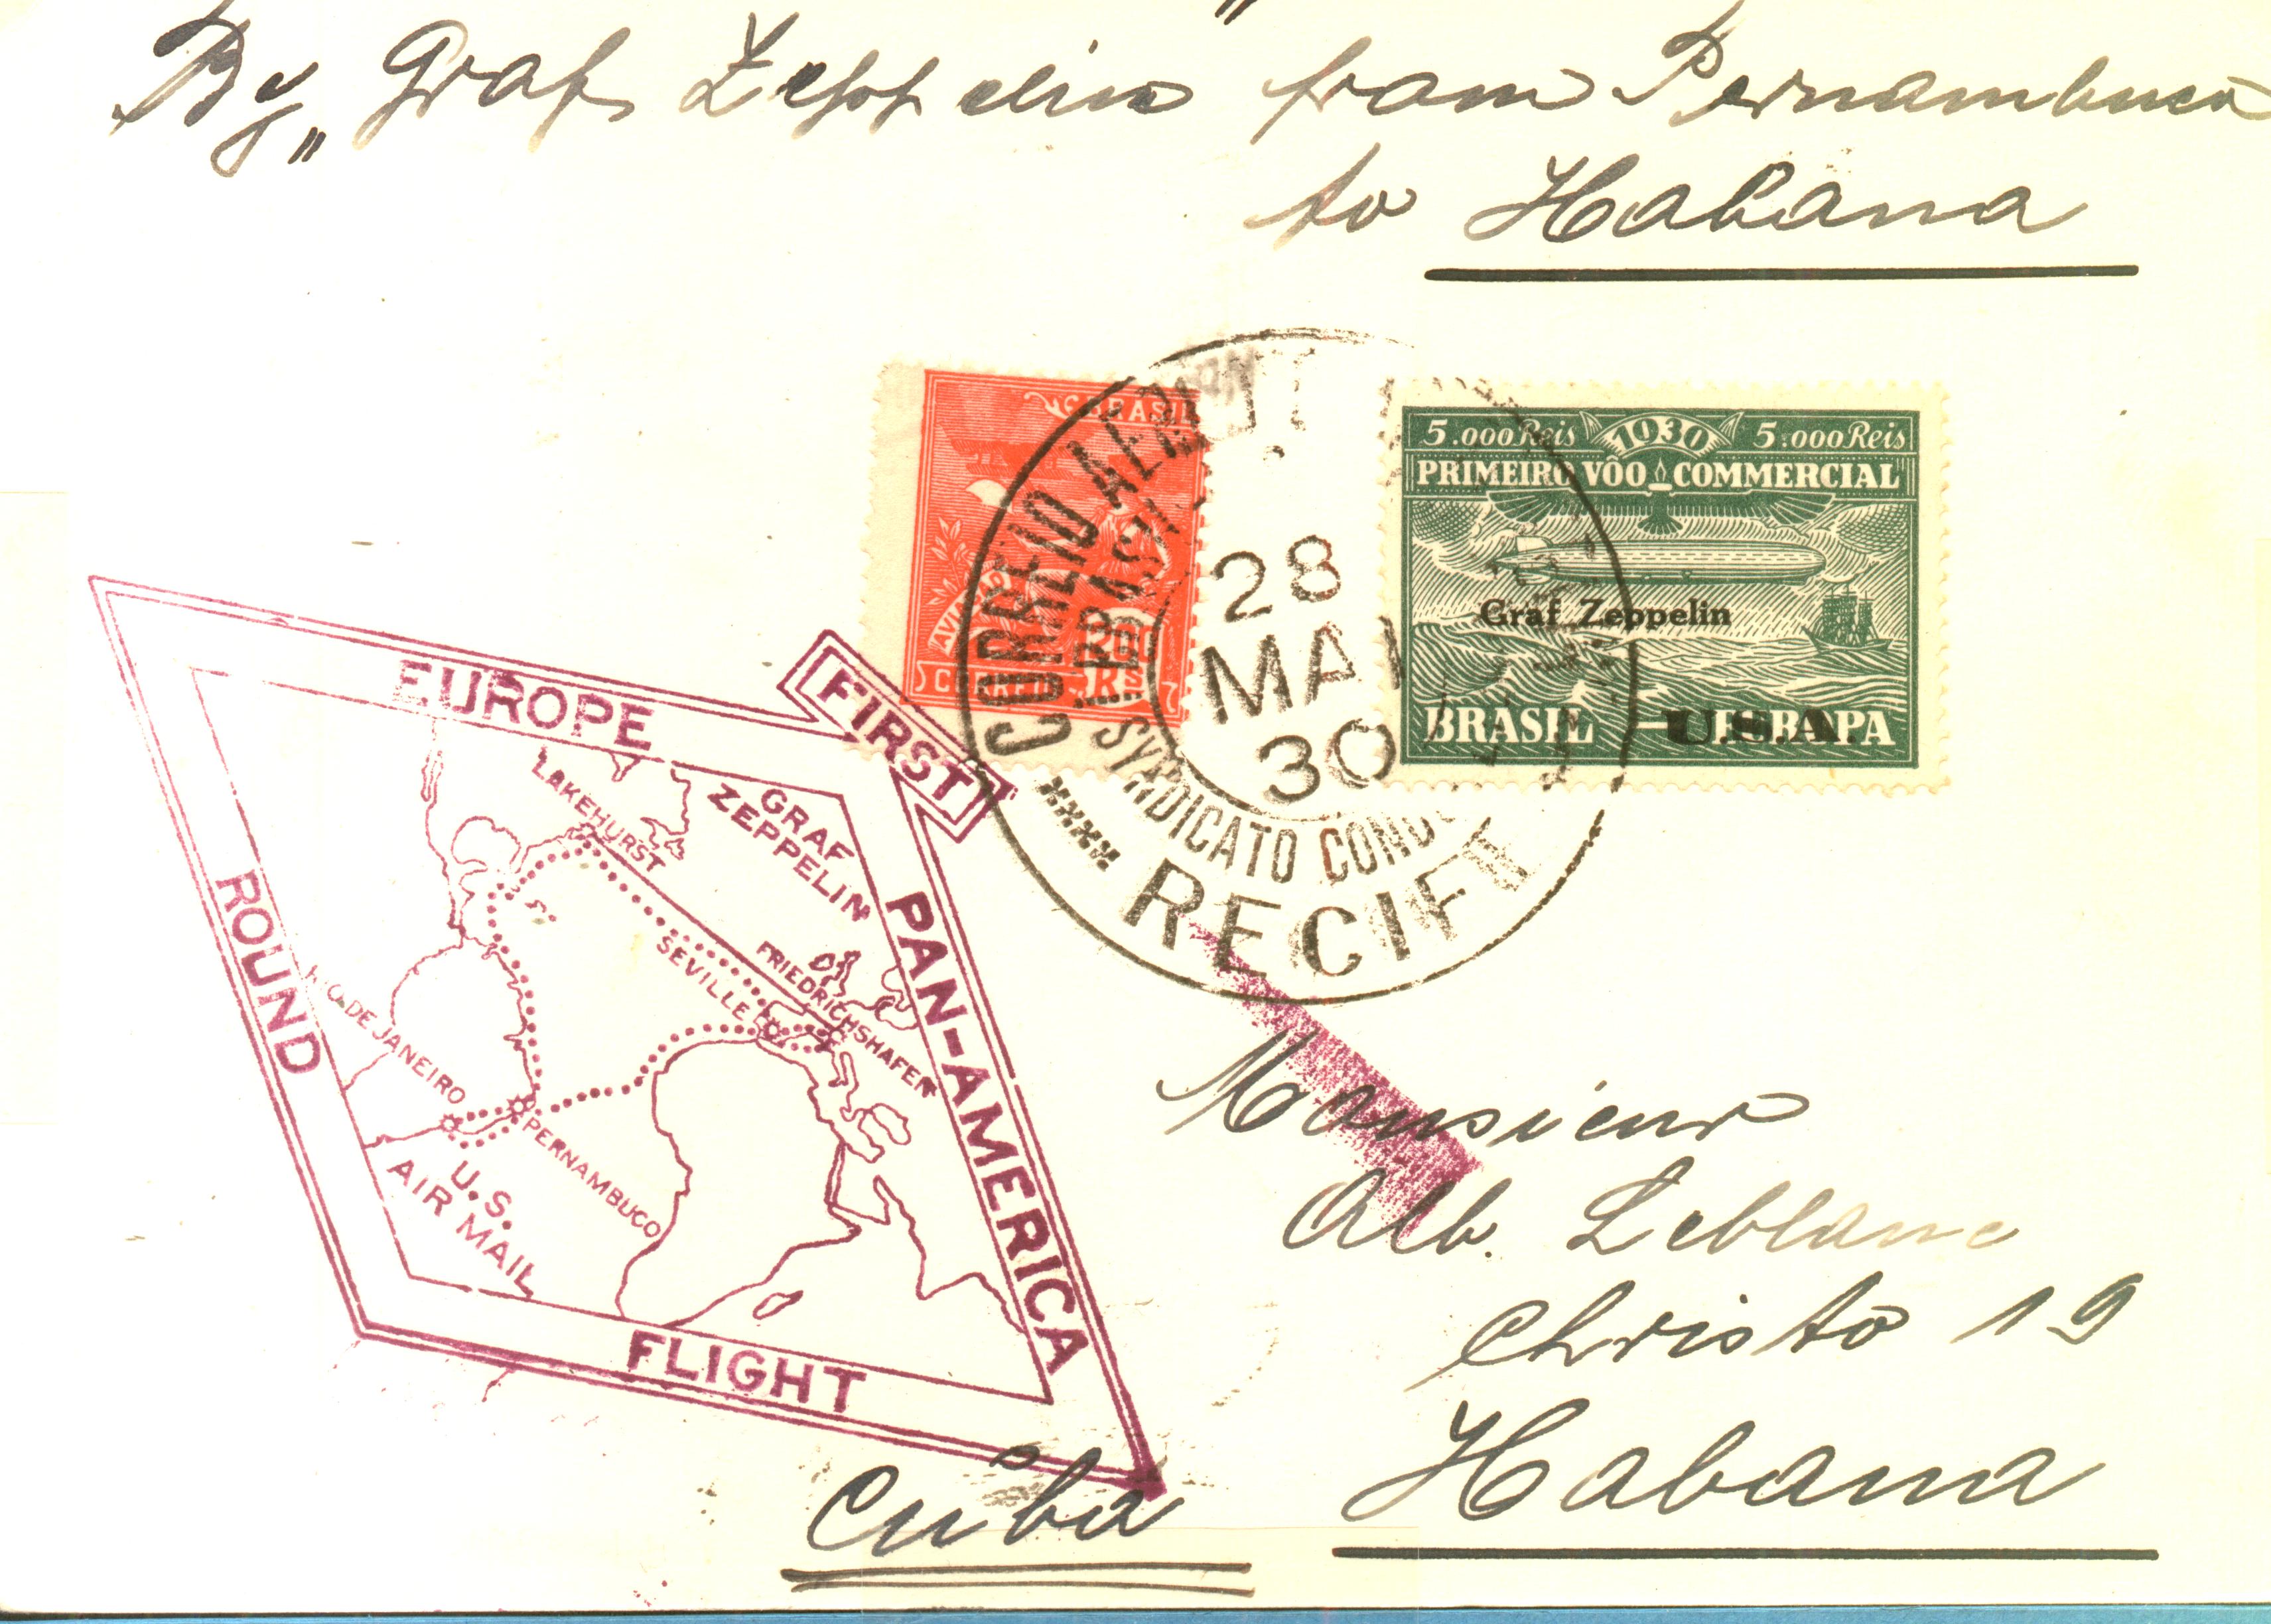 By „Graf Zeppelin" from Pernambuco
to Habana
BRASIL
AVIAÇÃO
CORREIO
RS
CORREIO AEREO
BRASIL
28
MAIO
30
SYNDICATO CONDOR
RECIFE
5.000 Reis 1930 5.000 Reis
PRIMEIRO VÔO COMMERCIAL
Graf Zeppelin
BRASIL — EUROPA
U.S.A.
FIRST
EUROPE
PAN-AMERICA
ROUND
FLIGHT
GRAF
ZEPPELIN
LAKEHURST
SEVILLE
FRIEDRICHSHAFEN
RIO DE JANEIRO
PERNAMBUCO
U.S.
AIR MAIL
Monsieur
Alb. Leblanc
Christo 19
Habana
Cuba